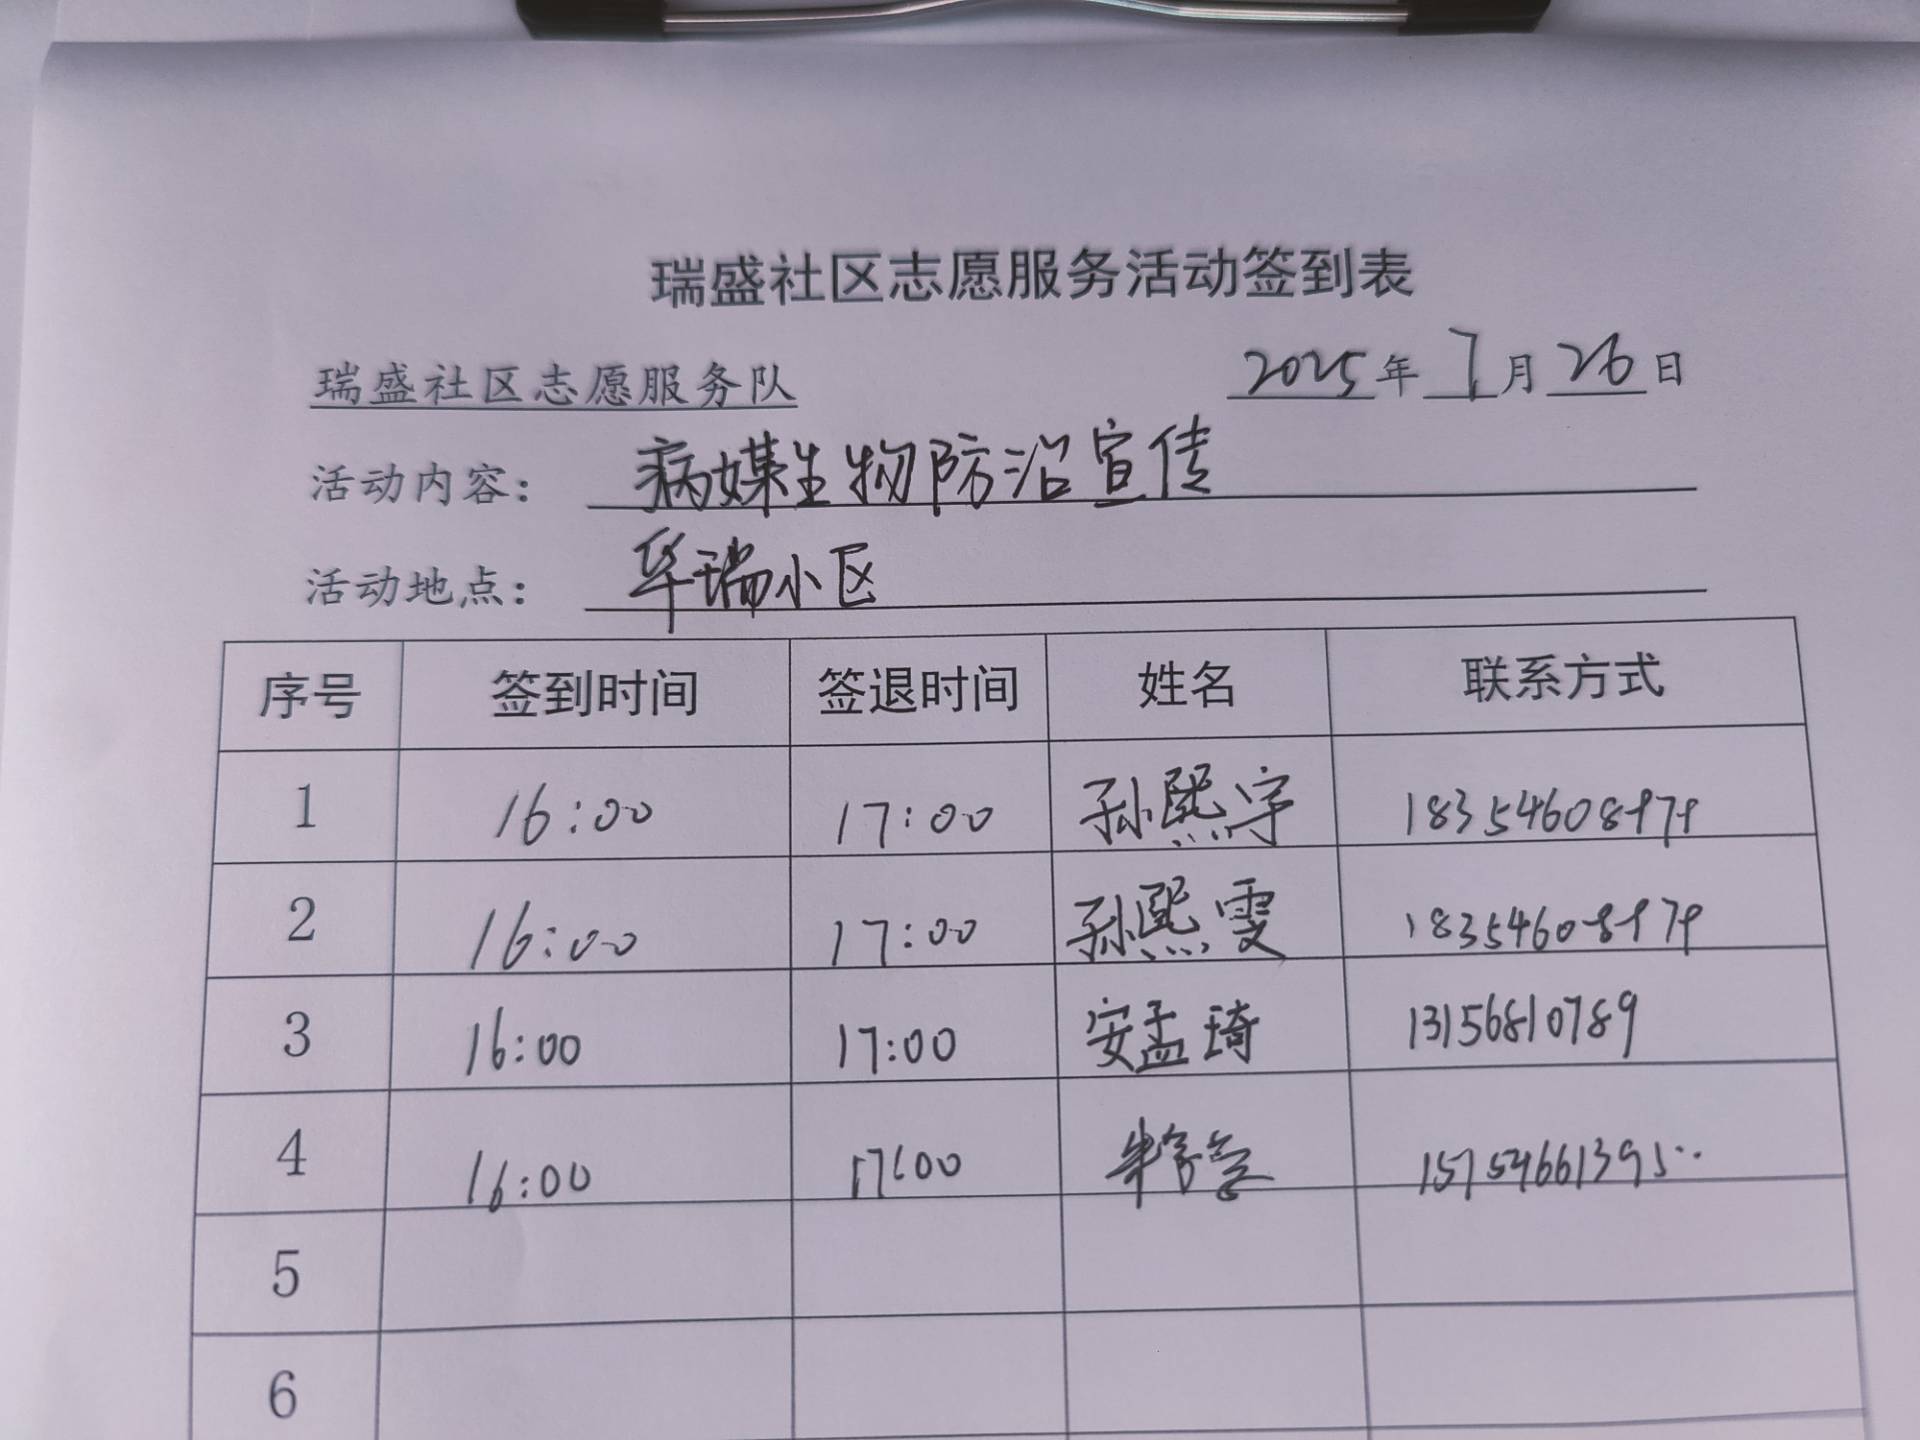 瑞盛社区志愿服务活动签到表
瑞盛社区志愿服务队 2025年 7月 26日
活动内容： 病媒生物防治宣传
活动地点： 华瑞小区
序号 签到时间 签退时间 姓名 联系方式
1 16:00 17:00 孙熙宇 18354608979
2 16:00 17:00 孙熙雯 18354608979
3 16:00 17:00 安孟琦 13156810789
4 16:00 17:00
5
6